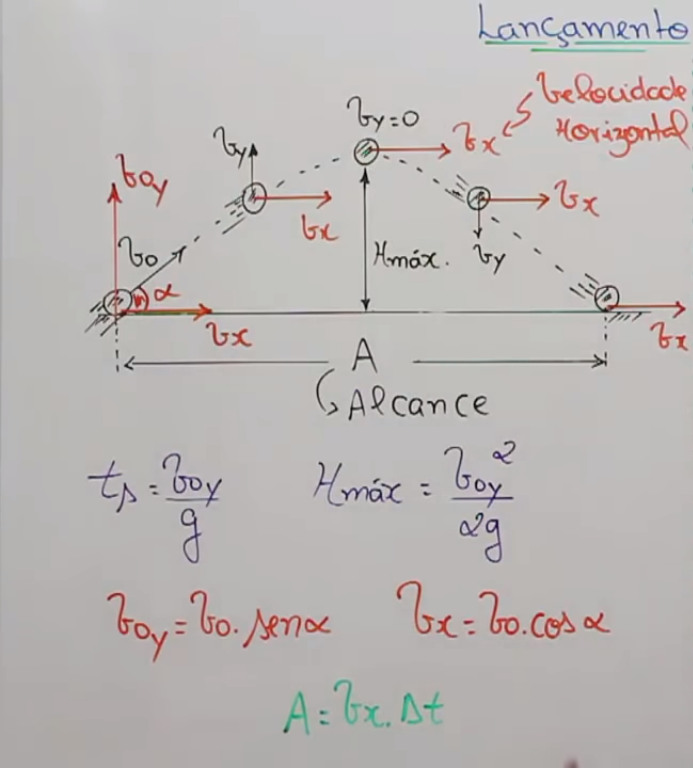 Lançamento
Velocidade
Horizontal
Vy=0
Vx
Vy
Vx
V0y
V0
α
Vx
Hmáx.
Vy
Vx
Vx
A
Alcance
ts = V0y/g
Hmáx = V0y²/2g
V0y = V0.senα
Vx = V0.cosα
A = Vx.Δt